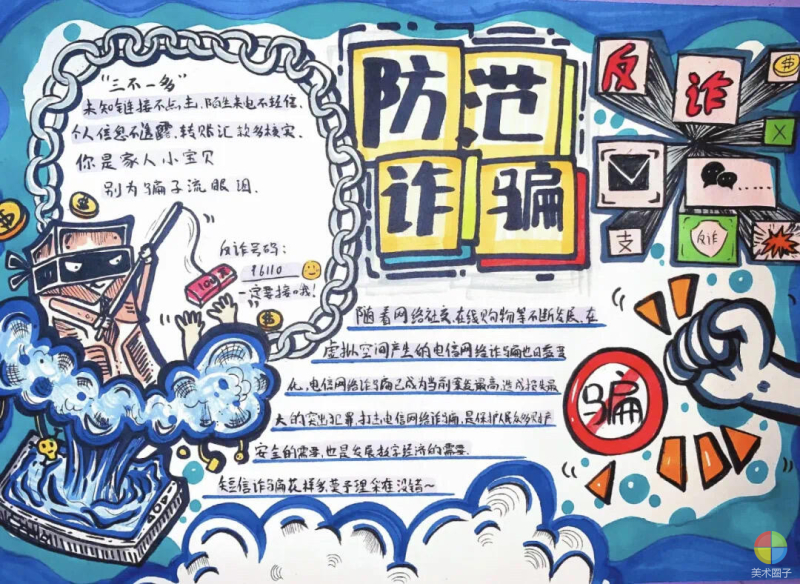 "三不一多"
未知链接不点击,陌生来电不轻信,
个人信息不透露,转账汇款多核实.
你是家人小宝贝
别为骗子流眼泪.
反诈号码:
96110
一定要接哦!
100元
防范
诈骗
反诈
支
反诈
骗
随着网络社交,在线购物等不断发展,在
虚拟空间产生的电信网络诈骗也日益变
化,电信网络诈骗已成为当前案发最高,造成损失最
大的突出犯罪,打击电信网络诈骗,是保护人民众的财产
安全的需要,也是发展数字经济的需要.
短信诈骗花样多 不予理采在没错~
美术圈子